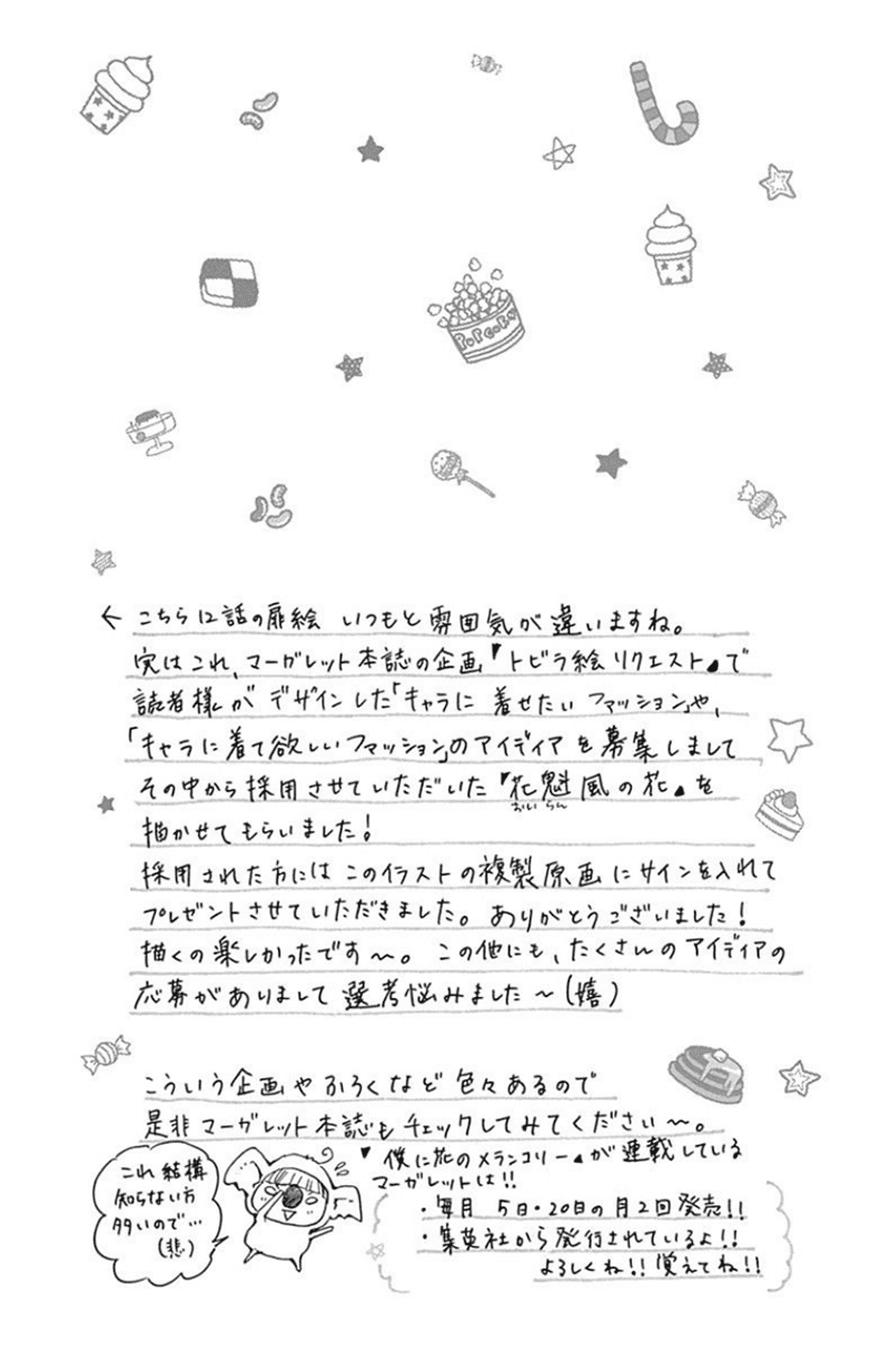 POPCORN
← こちら12話の扉絵 いつもと雰囲気が違いますね。
実はこれ、マーガレット本誌の企画『トビラ絵リクエスト』で
読者様がデザインした「キャラに着せたいファッション」や、
「キャラに着て欲しいファッション」のアイディアを募集しまして
その中から採用させていただいた『花魁風の花』を
おいらん
描かせてもらいました!
採用された方にはこのイラストの複製原画にサインを入れて
プレゼントさせていただきました。ありがとうございました!
描くの楽しかったです〜。この他にも、たくさんのアイディアの
応募がありまして選考悩みました〜(嬉)
こういう企画やふろくなど色々あるので
是非マーガレット本誌もチェックしてみてください〜。
これ結構
知らない方
多いので…
(悲)
『僕に花のメランコリー』が連載している
マーガレットは!!
・毎月 5日・20日の月2回発売!!
・集英社から発行されているよ!!
よろしくね!!覚えてね!!